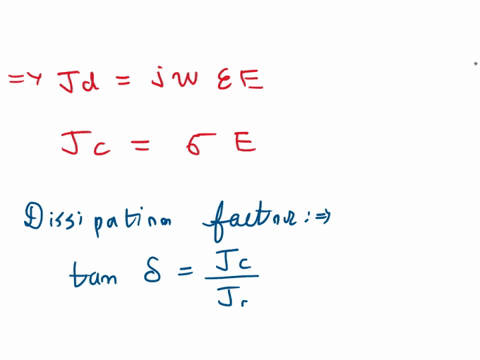 => Jd = jw εE
Jc = σ E
Dissipation factor :=>
tan δ = Jc / J